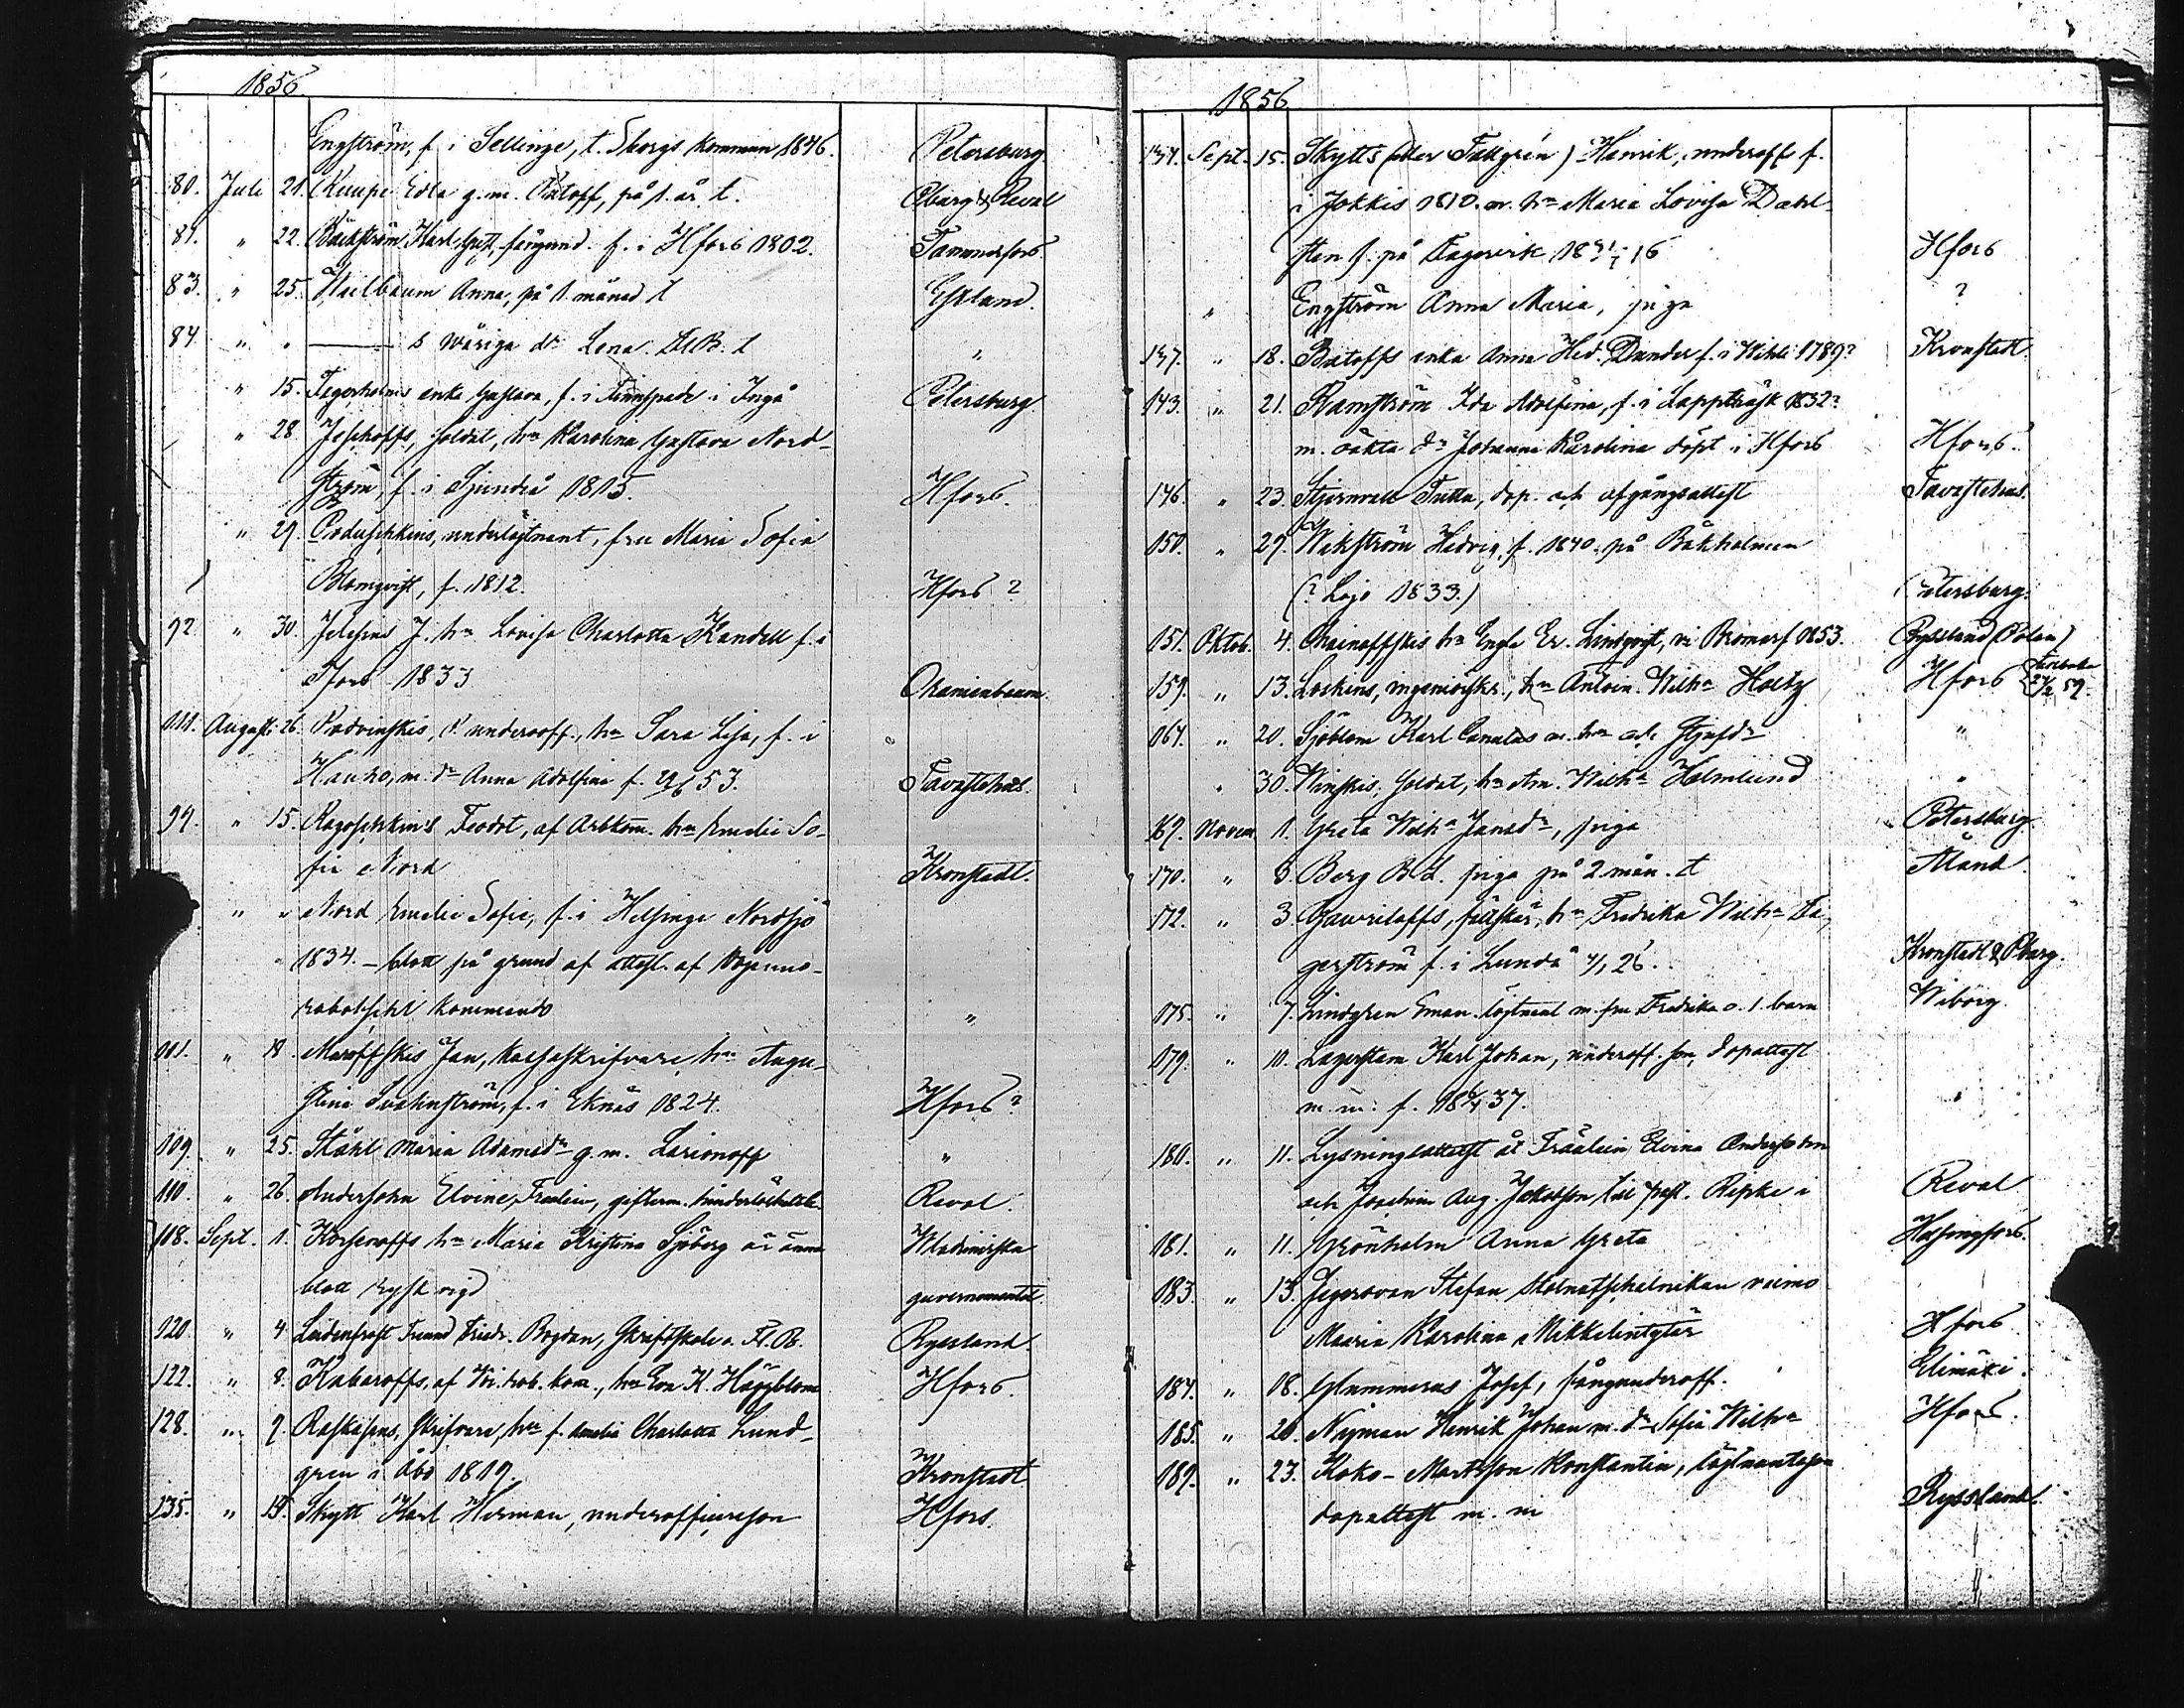 1856.
Engström, f. i Sellinge, t. Sborgs kommun 1846. Petersburg
80. Juli 21. Kuupe Edla g. m. Patoff, på 1. år t. Pburg & Reval
81. " 22. Bäckström Karl Gust. f. i Hfors 1802. Tammerfors
83. " 25. Heilbaum Anna, på 1. månad t Estland.
84. " " — 5 åriga dr Lena t "
" 15. Tegerholms enka Gustava, f. i i Ingå Petersburg
" 28. Jeschoffs, soldat, hu Karolina Gustava Nord-
ström, f. i Sjundeå 1815. Hfors.
" 29. Poduschkins, underlöjtnant, fru Maria Sofia
Blomqvist, f. 1812. Hfors ?
92. " 30. J. hu Lovisa Charlotta Kandell f. i
Hfors 1833 Oranienbaum.
111. Augusti 26. Podvinskis, underoff., hu Sara Lisa, f. i
Hauho, m. dr Anna Adolfina f. 53. Tavastehus.
94. " 15. Ragoschkin's Feodot, af Arbkom. hu Emelie So-
fie Nord Kronstadt.
" " Nord Emelie Sofie, f. i Helsinge Nordsjö
1834. – blott på grund af attest. af Wojenno-
rabotschi kommando "
101. " 18. Maroffskis Jan, kassaskrifvare, hu Augu-
stina Svahnström, f. i Eknäs 1824. Hfors ?
109. " 25. Ståhl Maria Adamsdr g. m. Larionoff "
110. " 26. Andersohn Elvine, Fraulein, gifterm. hinderlöshetsb. Reval.
118. Sept. 1. hu Maria Kristina Sjöberg är ännu Wladimirska
blott rysk vigd guvernementet.
120. " 4. Leidenfrost Freund Friedr. Bogdan, Ryssland.
122. " 8. Kabaroffs, af Wi. rob. kom., hu Eva K. Häggblom Hfors.
128. " 9. Raskasins, skrifvare, hu f. Amalia Charlotta Lund-
gren i Åbo 1819. Kronstadt
135. " 15. Skytt Karl Herman, underofficersson Hfors.
1856
134. Sept. 15. Skytts (eller Tallgrén) Henrik, underoff f.
i Jokkis 1810. m. hu Maria Lovisa Dahl-
sten f. på Fagervik 16 Hfors
" Engström Anna Maria, piga ?
137. " 18. Batoffs enka Anna Hed. Dunder f. i Wihti 1789? Kronstadt
143. " 21. Ramström Ida Adolfina, f. i Lappträsk 1832?
m. oäkta dr Johanna Karolina döpt i Hfors Hfors.
146. " 23. Stjernvall Tutta, dop. och afgångsattest Tavastehus.
150. " 29. Wikström Hedvig, f. 1840. på Båkholmen
(? Lojo 1833.) Petersburg.
151. Oktob. 4. hu Engla Er. Lindqvist, vi. Bromarf 1853. Ryssland (Polen)
159. " 13. Loskins, ingeniörskr., hu Antoin. Wilha Holtz Hfors 59.
164. " 20. Sjöblom Karl m. hu och "
" 30. Winskis, soldat, hu Am. Wilha Holmlund "
169. Novem. 1. Greta Wilha Jansdr, piga Petersburg
170. " 3. Berg B. L. piga på 2. mån. t Åland.
172. " 3. Gawriloffs, fältskär, hu Fredrika Wilha La-
gerström f. i Lundå 26. Kronstadt & Pburg.
175. " 7. Lindgren Eman. löjtnant m. fru Fredrika o. 1. barn Wiborg.
179. " 10. Lagerstam Karl Johan, underoff. son, dopattest
m. m. f. 37. "
180. " 11. Lysningsattest åt Fräulein Elvine Andersohn
och Joachim Aug. Jakobson till past. Ripke i Reval
181. " 11. Grönholm Anna Greta Helsingfors.
183. " 13. Jegorovan Stefan vaimo
Maaria Karolina Mikkelintytär Hfors
184. " 18. Glummerus Josef, fångunderoff. Elimäki.
185. " 20. Nyman Henrik Johan m. dr Sofia Wilha Hfors.
189. " 23. Koko-Martsson Konstantin, löjtnantsson
dopattest m. m Ryssland.